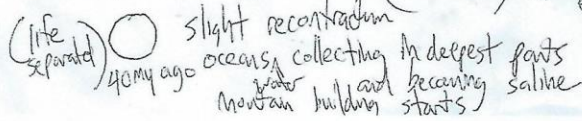 (life separated) slight recontraction
40my ago oceans, water collecting in deepest parts and becoming saline
mountain building starts